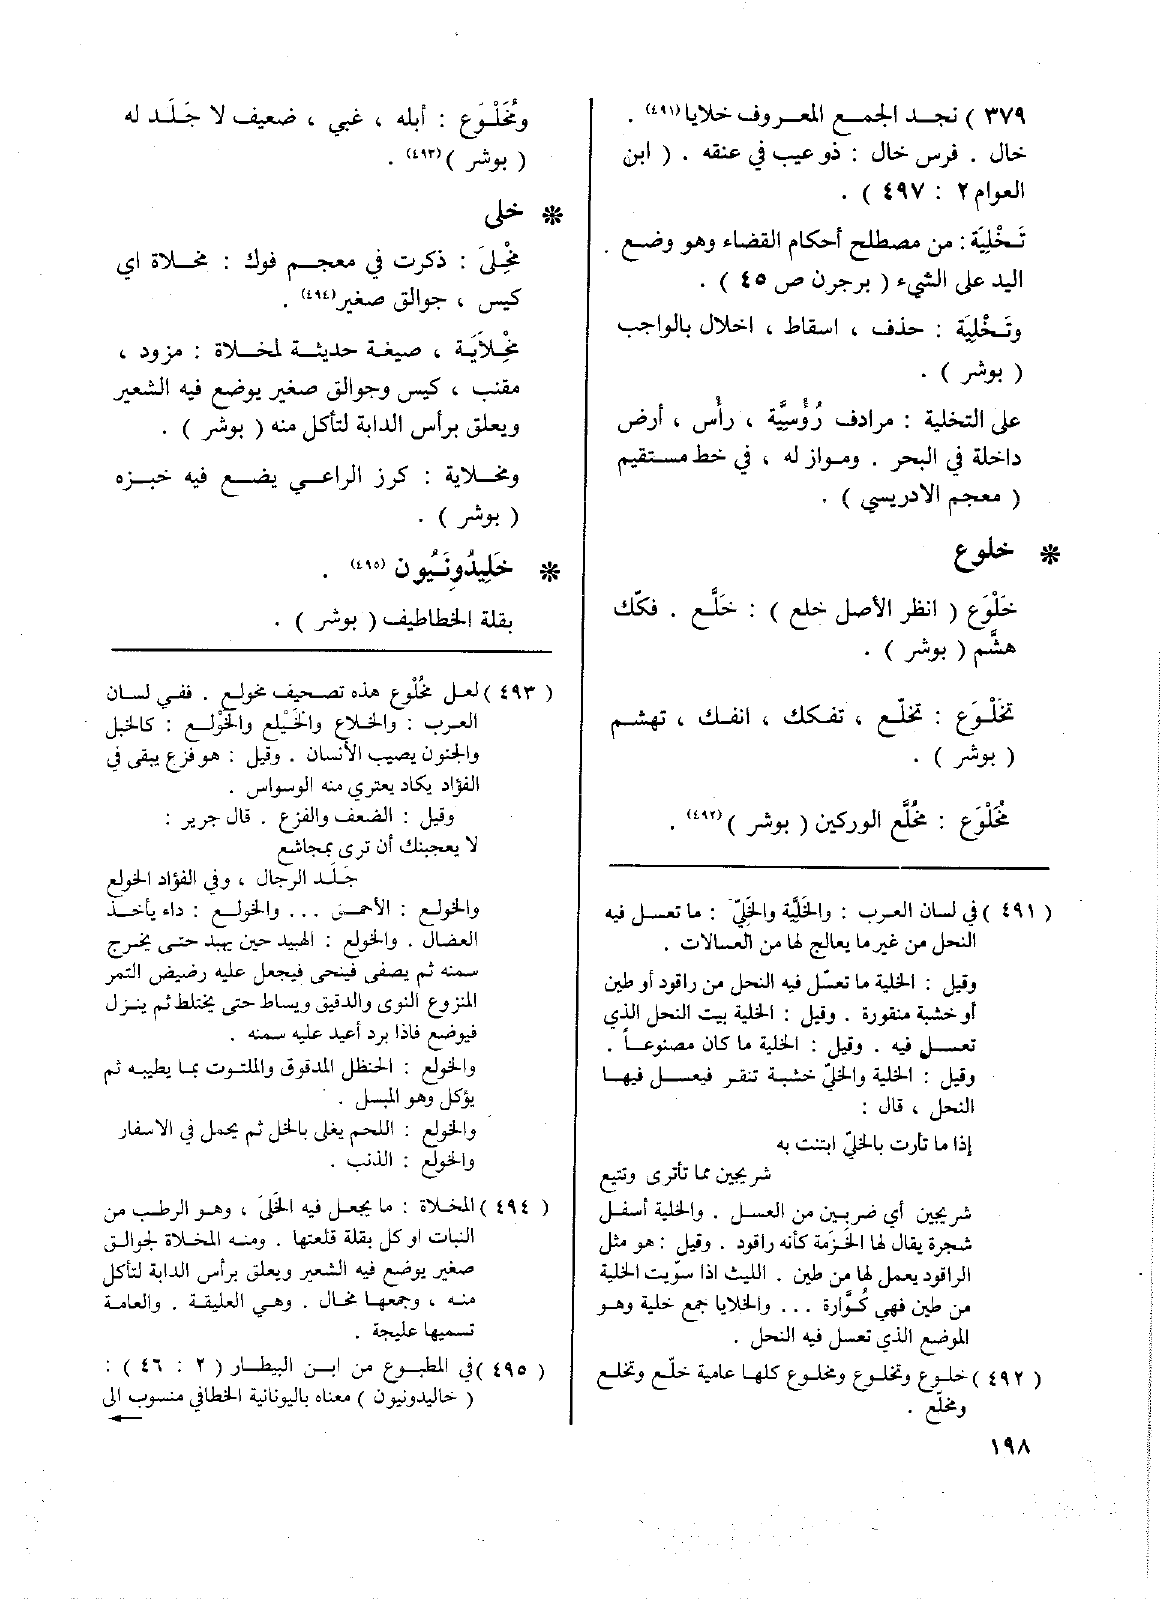 ٣٧٩ ) نجد الجمع المعروف خلايا(٤٩١) .
خال . فرس خال : ذو عيب في عنقه . ( ابن
العوام ٢ : ٤٩٧ ) .
تَخْلِيَة : من مصطلح أحكام القضاء وهو وضع
اليد على الشيء ( برجرن ص ٤٥ ) .
وتَخْلِيَة : حذف ، اسقاط ، اخلال بالواجب
( بوشر ) .
على التخلية : مرادف رُؤْسِيَّة ، رأْس ، أرض
داخلة في البحر . ومواز له ، في خط مستقيم
( معجم الادريسي ) .
* خلوع
خَلْوَع ( انظر الأصل خلع ) : خَلَّع . فكّك
هشَّم ( بوشر ) .
تَخَلْوَع : تخلّع ، تفكك ، انفك ، تهشم
( بوشر ) .
مُخَلْوَع : مُخَلَّع الوركين ( بوشر )(٤٩٢) .
( ٤٩١ ) في لسان العرب : والخَلِيَّة والخَلِيّ : ما تعسل فيه
النحل من غير ما يعالج لها من العسالات .
وقيل : الخلية ما تعسّل فيه النحل من راقود أو طين
أو خشبة منقورة . وقيل : الخلية بيت النحل الذي
تعسل فيه . وقيل : الخلية ما كان مصنوعاً .
وقيل : الخلية والخليّ خشبة تنقر فيعسل فيها
النحل ، قال :
إذا ما تأرت بالخليّ ابتنت به
شريجين مما تأترى وتتيع
شريجين أي ضربين من العسل . والخلية أسفل
شجرة يقال لها الخزمة كأنه راقود . وقيل : هو مثل
الراقود يعمل لها من طين . الليث اذا سوّيت الخلية
من طين فهي كُوَّارة ... والخلايا جمع خلية وهو
الموضع الذي تعسل فيه النحل .
( ٤٩٢ ) خلوع وتخلوع ومخلوع كلها عامية خلّع وتخلع
ومخلّع .
١٩٨
ومُخَلْوَع : أبله ، غبي ، ضعيف لا جَلَد له
( بوشر )(٤٩٣) .
* خلى
مِخْلِىَ : ذكرت في معجم فوك : مخلاة اي
كيس ، جوالق صغير(٤٩٤) .
مِخْلاَيَة ، صيغة حديثة لمخلاة : مزود ،
مقنب ، كيس وجوالق صغير يوضع فيه الشعير
ويعلق برأس الدابة لتأكل منه ( بوشر ) .
ومخلاية : كرز الراعي يضع فيه خبزه
( بوشر ) .
* خَلِيدُونَيُون (٤٩٥) .
بقلة الخطاطيف ( بوشر ) .
( ٤٩٣ ) لعل مُخَلْوع هذه تصحيف مخولع . ففي لسان
العرب : والخلاع والخَيْلع والخَوْلع : كالخبل
والجنون يصيب الأنسان . وقيل : هو فزع يبقى في
الفؤاد يكاد يعتري منه الوسواس .
وقيل : الضعف والفزع . قال جرير :
لا يعجبنك أن ترى بمجاشع
جَلَد الرجال ، وفي الفؤاد الخولع
والخولع : الأحمق ... والخولع : داء يأخذ
العضال . والخولع : الهبيد حين يهبد حتى يخرج
سمنه ثم يصفى فينحى فيجعل عليه رضيض التمر
المنزوع النوى والدقيق ويساط حتى يختلط ثم ينزل
فيوضع فاذا برد أعيد عليه سمنه .
والخولع : الحنظل المدقوق والملتوت بما يطيبه ثم
يؤكل وهو المبسل .
والخولع : اللحم يغلى بالخل ثم يحمل في الاسفار
والخولع : الذئب .
( ٤٩٤ ) المخلاة : ما يجعل فيه الخَلَىَ ، وهو الرطب من
النبات او كل بقلة قلعتها . ومنه المخلاة لجوالق
صغير يوضع فيه الشعير ويعلق برأس الدابة لتأكل
منه ، وجمعها مخال . وهي العليقة . والعامة
تسميها عليجة .
( ٤٩٥ ) في المطبوع من ابن البيطار ( ٢ : ٤٦ ) :
( خاليدونيون ) معناه باليونانية الخطافي منسوب الى